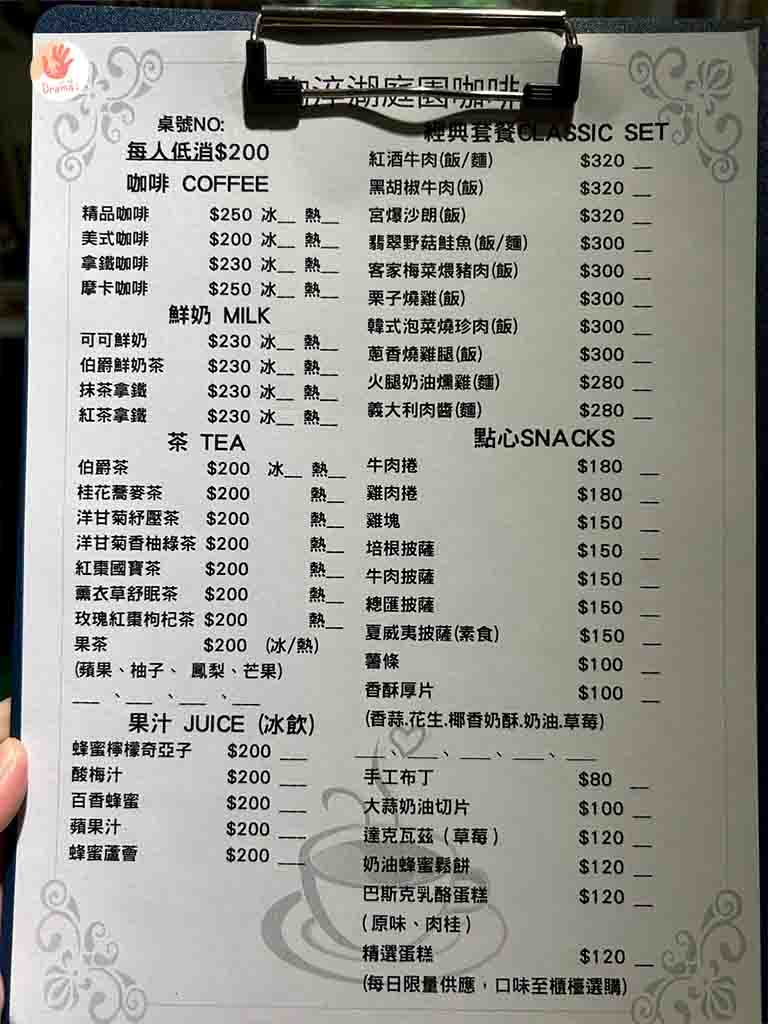 Drama
淬湖庭園咖啡
桌號NO:
每人低消$200
咖啡 COFFEE
精品咖啡 $250 冰__ 熱__
美式咖啡 $200 冰__ 熱__
拿鐵咖啡 $230 冰__ 熱__
摩卡咖啡 $250 冰__ 熱__
鮮奶 MILK
可可鮮奶 $230 冰__ 熱__
伯爵鮮奶茶 $230 冰__ 熱__
抹茶拿鐵 $230 冰__ 熱__
紅茶拿鐵 $230 冰__ 熱__
茶 TEA
伯爵茶 $200 冰__ 熱__
桂花蕎麥茶 $200 熱__
洋甘菊紓壓茶 $200 熱__
洋甘菊香柚綠茶 $200 熱__
紅棗國寶茶 $200 熱__
薰衣草舒眠茶 $200 熱__
玫瑰紅棗枸杞茶 $200 熱__
果茶 $200 (冰/熱)
(蘋果、柚子、 鳳梨、芒果)
___ 、___ 、___ 、___
果汁 JUICE (冰飲)
蜂蜜檸檬奇亞子 $200 ___
酸梅汁 $200 ___
百香蜂蜜 $200 ___
蘋果汁 $200 ___
蜂蜜蘆薈 $200 ___
經典套餐CLASSIC SET
紅酒牛肉(飯/麵) $320 __
黑胡椒牛肉(飯) $320 __
宮爆沙朗(飯) $320 __
翡翠野菇鮭魚(飯/麵) $300 __
客家梅菜煨豬肉(飯) $300 __
栗子燒雞(飯) $300 __
韓式泡菜燒珍肉(飯) $300 __
蔥香燒雞腿(飯) $300 __
火腿奶油燻雞(麵) $280 __
義大利肉醬(麵) $280 __
點心SNACKS
牛肉捲 $180 __
雞肉捲 $180 __
雞塊 $150 __
培根披薩 $150 __
牛肉披薩 $150 __
總匯披薩 $150 __
夏威夷披薩(素食) $150 __
薯條 $100 __
香酥厚片 $100 __
(香蒜.花生.椰香奶酥.奶油.草莓)
___、___、___、___、___
手工布丁 $80 __
大蒜奶油切片 $100 __
達克瓦茲（草莓） $120 __
奶油蜂蜜鬆餅 $120 __
巴斯克乳酪蛋糕 $120 __
（原味、肉桂）
精選蛋糕 $120 __
(每日限量供應，口味至櫃檯選購)